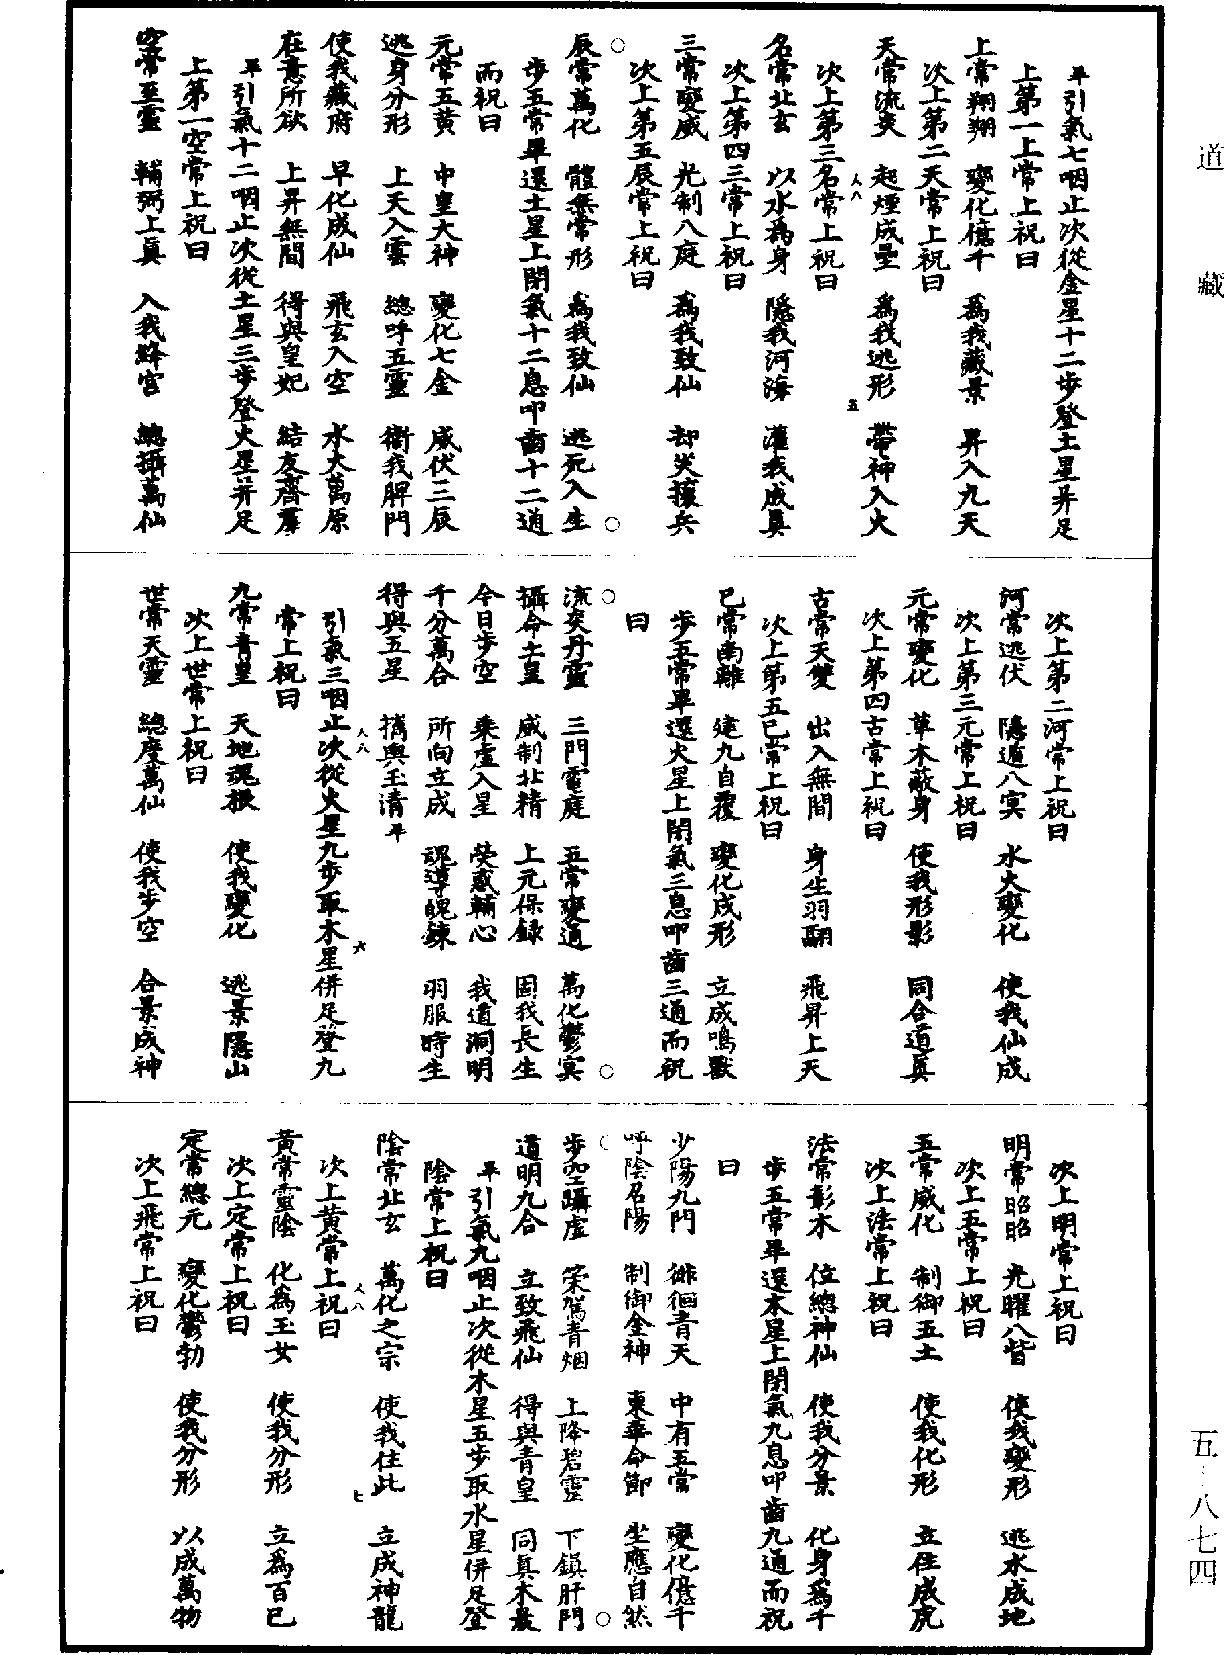 道藏
五·八七四
畢引氣七咽止次從金星十二步登土星并足
上第一上常上祝曰
上常翔翔 變化億千 為我藏景 昇入九天
次上第二天常上祝曰
天常流災 起煙成壘 為我逃形 帶神入火
次上第三名常上祝曰
名常北玄 以水為身 隱我河海 灌我成真
次上第四三常上祝曰
三常變威 光制八庭 為我致仙 却災攘兵
次上第五辰常上祝曰
辰常萬化 體無常形 為我致仙 逃死入生
步五常畢還土星上閉氣十二息叩齒十二通
而祝曰
元常五黃 中皇大神 變化七金 威伏三辰
逃身分形 上天入雲 總呼五靈 衛我脾門
使我藏府 早化成仙 飛玄入空 水火萬原
在意所欲 上昇無間 得與皇妃 結友齊羣
畢引氣十二咽止次從土星三步登火星并足
上第一空常上祝曰
空常至靈 輔弼上真 入我絳宮 總攝萬仙
次上第二河常上祝曰
河常逃伏 隱遁八冥 水火變化 使我仙成
次上第三元常上祝曰
元常變化 草木蔽身 使我形影 同合道真
次上第四古常上祝曰
古常天雙 出入無間 身生羽翮 飛昇上天
次上第五巳常上祝曰
巳常南離 建九自覆 變化成形 立成鳴獸
步五常畢還火星上閉氣三息叩齒三通而祝
曰
流炎丹靈 三門電庭 五常變通 萬化鬱冥
攝命土皇 威制北精 上元保錄 固我長生
今日步空 乘虛入星 熒惑輔心 我道洞明
千分萬合 所向立成 魂導魄鍊 羽服時生
得與五星 攜輿玉清畢
引氣三咽止次從火星九步取木星併足登九
常上祝曰
九常青皇 天地魂根 使我變化 逃景隱山
次上世常上祝曰
世常天靈 總度萬仙 使我步空 合景成神
次上明常上祝曰
明常昭昭 光曜八皆 使我變形 逃水成地
次上五常上祝曰
五常威化 制御五土 使我化形 立住成虎
次上法常上祝曰
法常彰木 位總神仙 使我分景 化身為千
步五常畢還木星上閉氣九息叩齒九通而祝
曰
少陽九門 徘徊青天 中有五常 變化億千
呼陰召陽 制御金神 東華命節 坐應自然
步空躡虛 策駕青烟 上降碧靈 下鎮肝門
道明九合 立致飛仙 得與青皇 同真木晨
畢引氣九咽止次從木星五步取水星併足登
陰常上祝曰
陰常北玄 萬化之宗 使我住此 立成神龍
次上黃常上祝曰
黃常靈陰 化為玉女 使我分形 立為百巳
次上定常上祝曰
定常總元 變化鬱勃 使我分形 以成萬物
次上飛常上祝曰